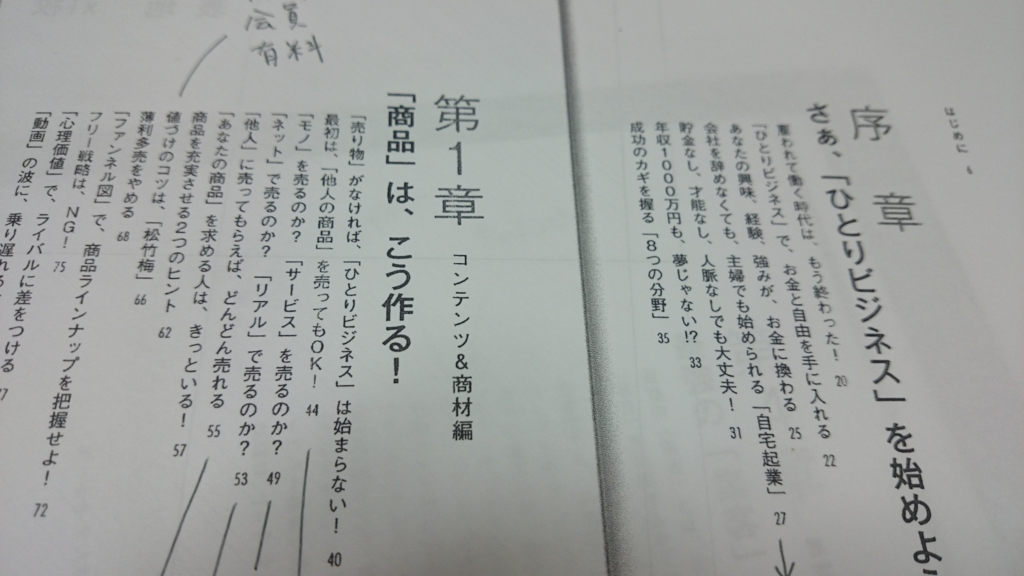 はじめに 4
序 章
さぁ、「ひとりビジネス」を始めよ
雇われて働く時代は、もう終わった! 20
「ひとりビジネス」で、お金と自由を手に入れる 22
あなたの興味、経験、強みが、お金に換わる 25
会社を辞めなくても、主婦でも始められる「自宅起業」 27
貯金なし、才能なし、人脈なしでも大丈夫! 31
年収1000万円も、夢じゃない!? 33
成功のカギを握る「8つの分野」 35
第1章 コンテンツ&商材編
「商品」は、こう作る!
「売り物」がなければ、「ひとりビジネス」は始まらない! 40
最初は、「他人の商品」を売ってもOK! 44
「モノ」を売るのか? 「サービス」を売るのか? 49
「ネット」で売るのか? 「リアル」で売るのか? 53
「他人」に売ってもらえば、どんどん売れる 55
「あなたの商品」を求める人は、きっといる! 57
商品を充実させる2つのヒント 62
値づけのコツは、「松竹梅」 66
薄利多売をやめる 68
「ファンネル図」で、商品ラインナップを把握せよ! 72
フリー戦略は、NG! 75
「心理価値」で、ライバルに差をつける 77
「動画」の波に、乗り遅れる
会員
有料